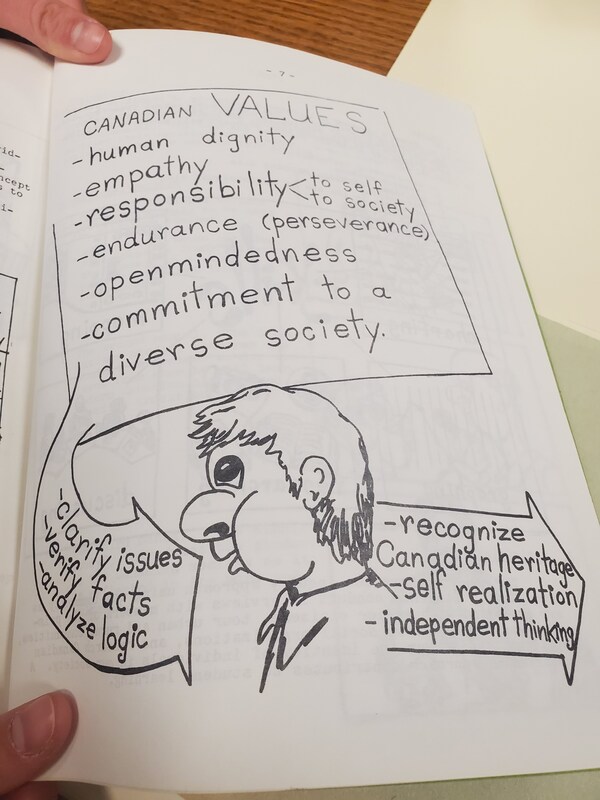 - 7 -
CANADIAN VALUES
-human dignity
-empathy
-responsibility < to self
to society
-endurance (perseverance)
-openmindedness
-commitment to a
diverse society.
-clarify issues
-verify facts
-analyze logic
-recognize
Canadian heritage
-self realization
-independent thinking
id-
ncept
s to
i-